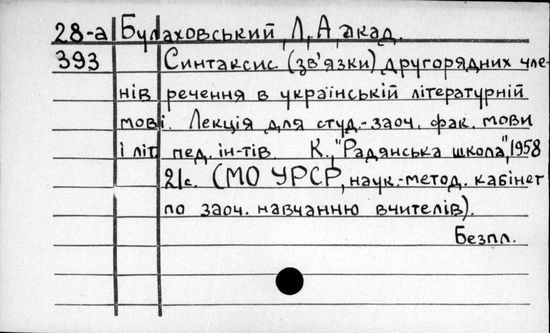 28-а Булаховський, Л, А акад.
393 Синтаксис (зв'язки) другорядних чле-
нів речення в українській літературній
мові. Лекція для студ.-заоч. фак. мови
і літ. пед. ін-тів. К., "Радянська школа", 1958
21с. (МО УРСР, наук.-метод. кабінет
по заоч. навчанню вчителів).
Безпл.